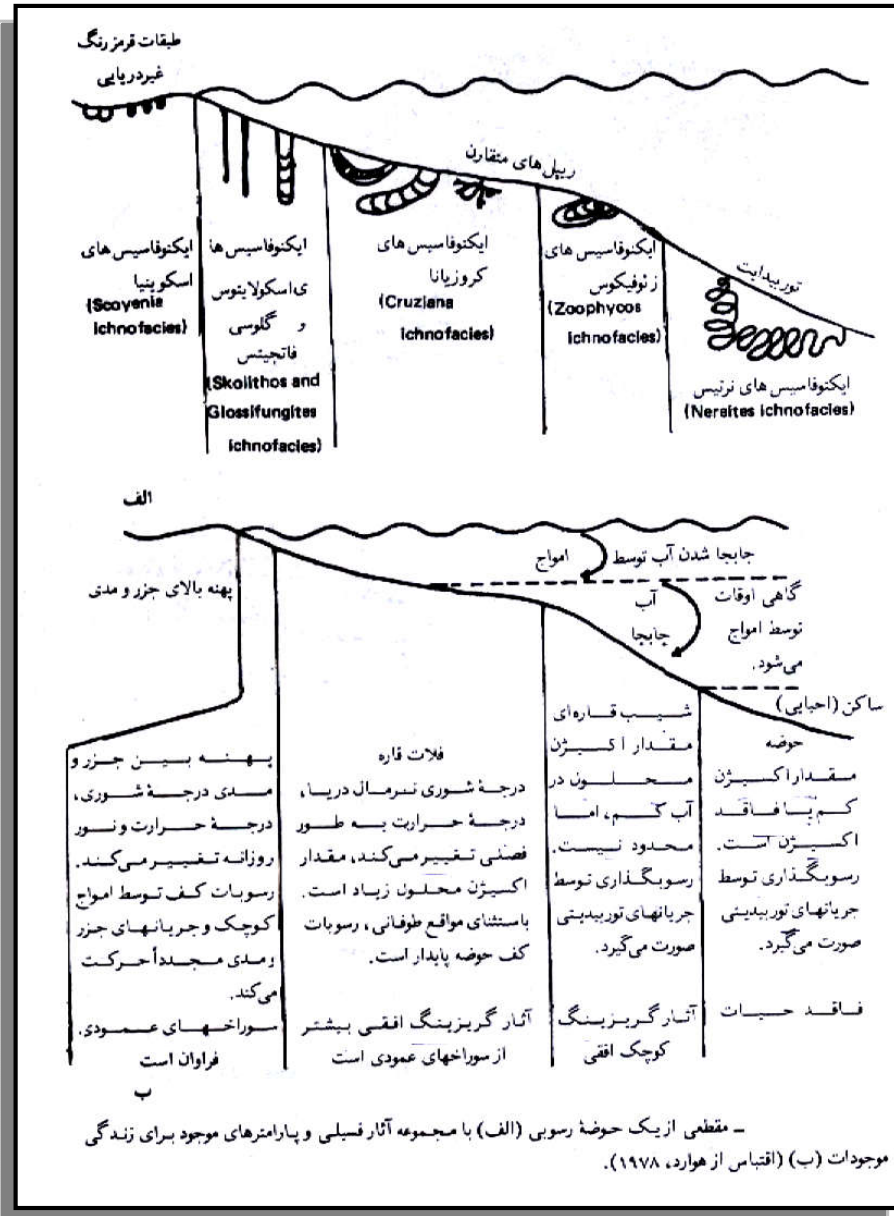 طبقات قرمز رنگ
غیردریایی
ریپل های متقارن
توربیدایت
ایکنوفاسیس های
اسکوینیا
(Scoyenia
ichnofacies)
ایکنوفاسیس ها
ی‌اسکولایتوس
و گلوسی
فاتجیتس
(Skolithos and
Glossifungites
ichnofacies)
ایکنوفاسیس های
کروزیانا
(Cruziana
ichnofacies)
ایکنوفاسیس های
زئوفیکوس
(Zoophycos
ichnofacies)
ایکنوفاسیس های نرتیس
(Nereites ichnofacies)
الف
جابجا شدن آب توسط امواج
گاهی اوقات آب
توسط امواج جابجا
می‌شود.
ساکن (احیایی)
پهنه بالای جزر و مدی
پهنه بین جزر و
مدی درجهٔ شوری،
درجهٔ حرارت و نور
روزانه تغییر می‌کند.
رسوبات کف توسط امواج
کوچک و جریانهای جزر
و مدی مجدداً حرکت
می‌کند.
سوراخهای عمودی.
فراوان است
فلات قاره
درجهٔ شوری نرمال دریا،
درجهٔ حرارت به طور
فصلی تغییر می‌کند، مقدار
اکسیژن محلول زیاد است.
باستثنای مواقع طوفانی، رسوبات
کف حوضه پایدار است.
آثار گریزینگ افقی بیشتر
از سوراخهای عمودی است
شیب قاره‌ای
مقدار اکسیژن
محلول در
آب کم، اما
محدود نیست.
رسوبگذاری توسط
جریانهای توربیدیتی
صورت می‌گیرد.
آثار گریزینگ
کوچک افقی
حوضه
مقدار اکسیژن
کم یا فاقد
اکسیژن است.
رسوبگذاری توسط
جریانهای توربیدیتی
صورت می‌گیرد.
فاقد حیات
ب
ـ مقطعی از یک حوضهٔ رسوبی (الف) با مجموعه آثار فسیلی و پارامترهای موجود برای زندگی
موجودات (ب) (اقتباس از هوارد، ۱۹۷۸).